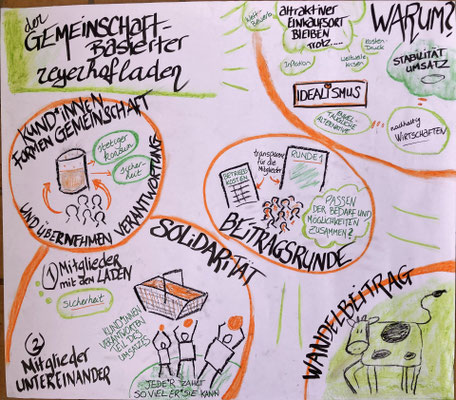 der
GEMEINSCHAFT-
BASIERTER
reyerhofladen
Wett-
bewerb
attraktiver
EINKAUFSORT
BLEIBEN
trotz....
Inflation
weltweite
Krisen
Kosten-
Druck
WARUM?
STABILITÄT
UMSATZ
IDEALISMUS
ENKEL-
TAUGLICHE
ALTERNATIVE
nachhaltig
WIRTSCHAFTEN
KUND*INNEN
FORMEN GEMEINSCHAFT
stetiger
Konsum
sicher-
heit
UND ÜBERNEHMEN VERANTWORTUNG
BETRIEBS
KOSTEN
transparent
für die
Mitglieder
RUNDE 1
PASSEN
DER BEDARF UND
MÖGLICHKEITEN
ZUSAMMEN?
BEITRAGSRUNDE
SOLIDARITÄT
1 Mitglieder
mit dem LADEN
sicherheit
KUND*INNEN
VERANTWORTEN
TEIL DES
UMSATZES
2
Mitglieder
UNTEREINANDER
JEDE*R ZAHLT
SO VIEL ER*SIE KANN
WANDELBEITRAG